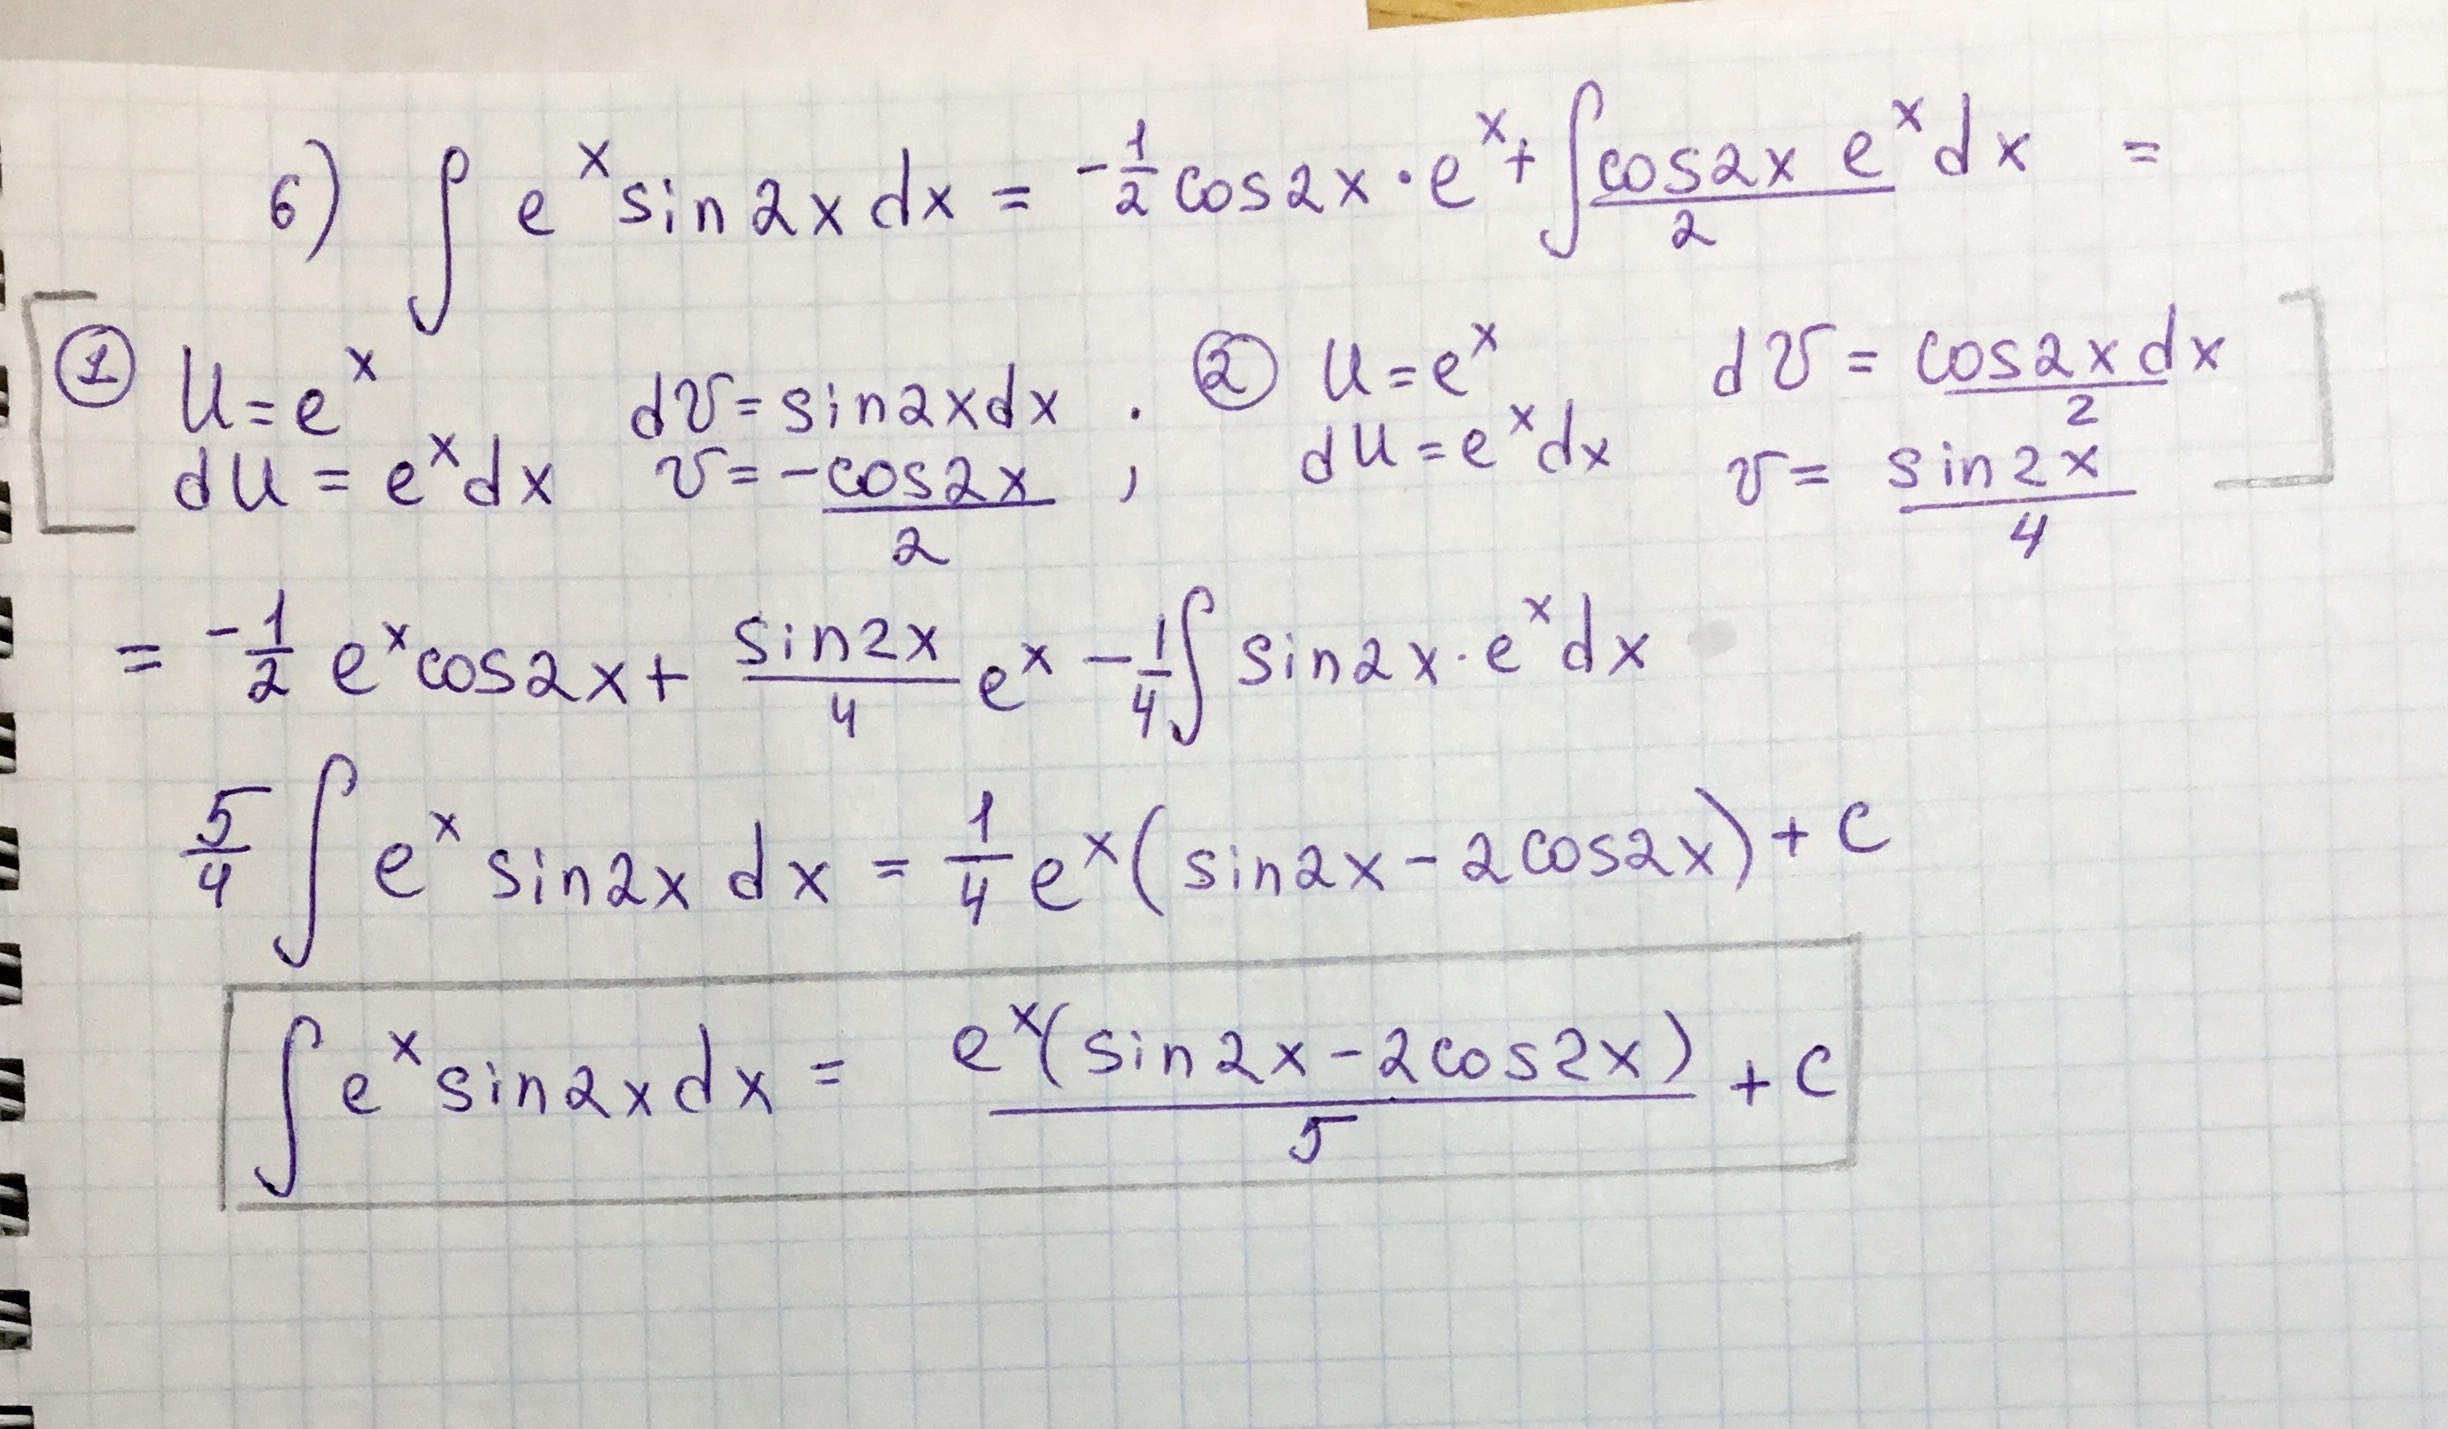 6) ∫ eˣ sin2x dx = -1/2 cos2x · eˣ + ∫ (cos2x eˣ)/2 dx =
① U = eˣ dV = sin2xdx ; ② U = eˣ dV = (cos2x)/2 dx
dU = eˣdx V = -(cos2x)/2 dU = eˣdx V = (sin2x)/4
= -1/2 eˣcos2x + (sin2x)/4 eˣ - 1/4 ∫ sin2x · eˣdx
5/4 ∫ eˣ sin2x dx = 1/4 eˣ(sin2x - 2cos2x) + C
∫ eˣ sin2xdx = (eˣ(sin2x - 2cos2x))/5 + C